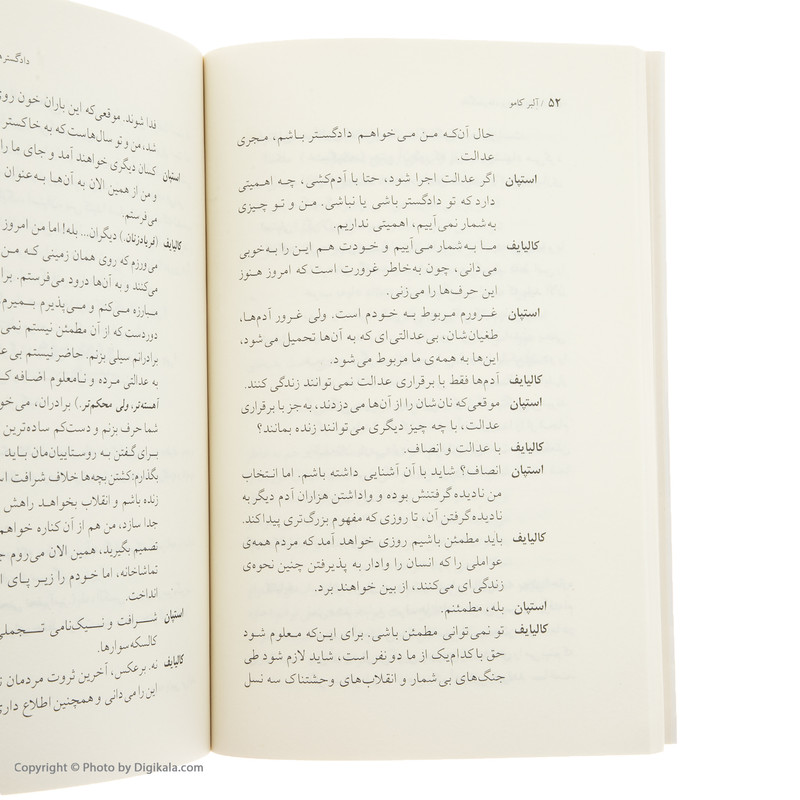 ۵۲ / آلبر کامو
حال آن‌که من می‌خواهم دادگستر باشم، مجری
عدالت.
استپان اگر عدالت اجرا شود، حتا با آدم‌کشی، چه اهمیتی
دارد که تو دادگستر باشی یا نباشی. من و تو چیزی
به‌شمار نمی‌آییم، اهمیتی نداریم.
کالیایف ما به‌شمار می‌آییم و خودت هم این را به‌خوبی
می‌دانی، چون به‌خاطر غرورت است که امروز هنوز
این حرف‌ها را می‌زنی.
استپان غرورم مربوط به خودم است. ولی غرور آدم‌ها،
طغیان‌شان، بی‌عدالتی‌ای که به آن‌ها تحمیل می‌شود،
این‌ها به همه‌ی ما مربوط می‌شود.
کالیایف آدم‌ها فقط با برقراری عدالت نمی‌توانند زندگی کنند.
استپان موقعی‌که نان‌شان را از آن‌ها می‌دزدند، به‌جز با برقراری
عدالت، با چه چیز دیگری می‌توانند زنده بمانند؟
کالیایف با عدالت و انصاف.
استپان انصاف؟ شاید با آن آشنایی داشته باشم. اما انتخاب
من نادیده گرفتنش بوده و واداشتن هزاران آدم دیگر به
نادیده گرفتن آن، تا روزی که مفهوم بزرگ‌تری پیدا کند.
کالیایف باید مطمئن باشیم روزی خواهد آمد که مردم همه‌ی
عواملی را که انسان را وادار به پذیرفتن چنین نحوه‌ی
زندگی‌ای می‌کنند، از بین خواهند برد.
استپان بله، مطمئنم.
کالیایف تو نمی‌توانی مطمئن باشی. برای این‌که معلوم شود
حق با کدام‌یک از ما دو نفر است، شاید لازم شود طی
جنگ‌های بی‌شمار و انقلاب‌های وحشتناک سه نسل
فدا شوند. موقعی‌که این باران خون روی
شد، من و تو سال‌هاست که به خاکستر
استپان کسان دیگری خواهند آمد و جای ما را
و من از همین الان به آن‌ها به‌عنوان
می‌فرستم.
کالیایف (فریادزنان.) دیگران... بله! اما من امروز
می‌ورزم که روی همان زمینی که من
می‌کنند و به آن‌ها درود می‌فرستم. برا
مبارزه می‌کنم و می‌پذیرم بمیرم.
دوردست که از آن مطمئن نیستم نمی
برادرانم سیلی بزنم. حاضر نیستم بی‌ع
به عدالتی مرده و نامعلوم اضافه ک
آهسته‌تر، ولی محکم‌تر.) برادران، می‌خو
شما حرف بزنم و دست‌کم ساده‌ترین
برای گفتن به روستاییان‌مان باید
بگذارم: کشتن بچه‌ها خلاف شرافت اس
زنده باشم و انقلاب بخواهد راهش
جدا سازد، من هم از آن کناره خواهم
تصمیم بگیرید، همین الان می‌روم ج
تماشاخانه، اما خودم را زیر پای ا
انداخت.
استپان شرافت و نیک‌نامی تجملی
کالسکه‌سوارها.
کالیایف نه. برعکس، آخرین ثروت مردمان ت
این را می‌دانی و همچنین اطلاع داری
Copyright © Photo by Digikala.com